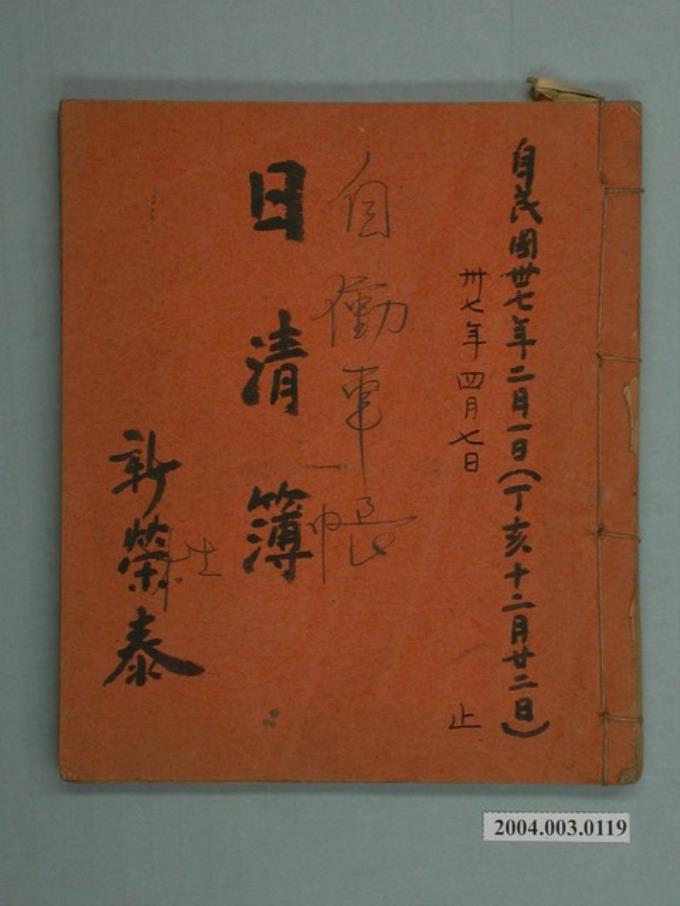 自民國卅七年二月一日(丁亥十二月廿二日)
卅七年四月七日
止
自働車帳
日清簿
新榮泰
2004.003.0119